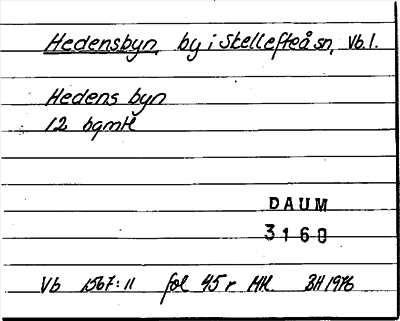 Hedensbyn, by i Skellefteå sn, Vb.l.
Hedens byn
12 bgmtl
DAUM
3160
Vb 1567:11 fol 45 r MH BH 1976